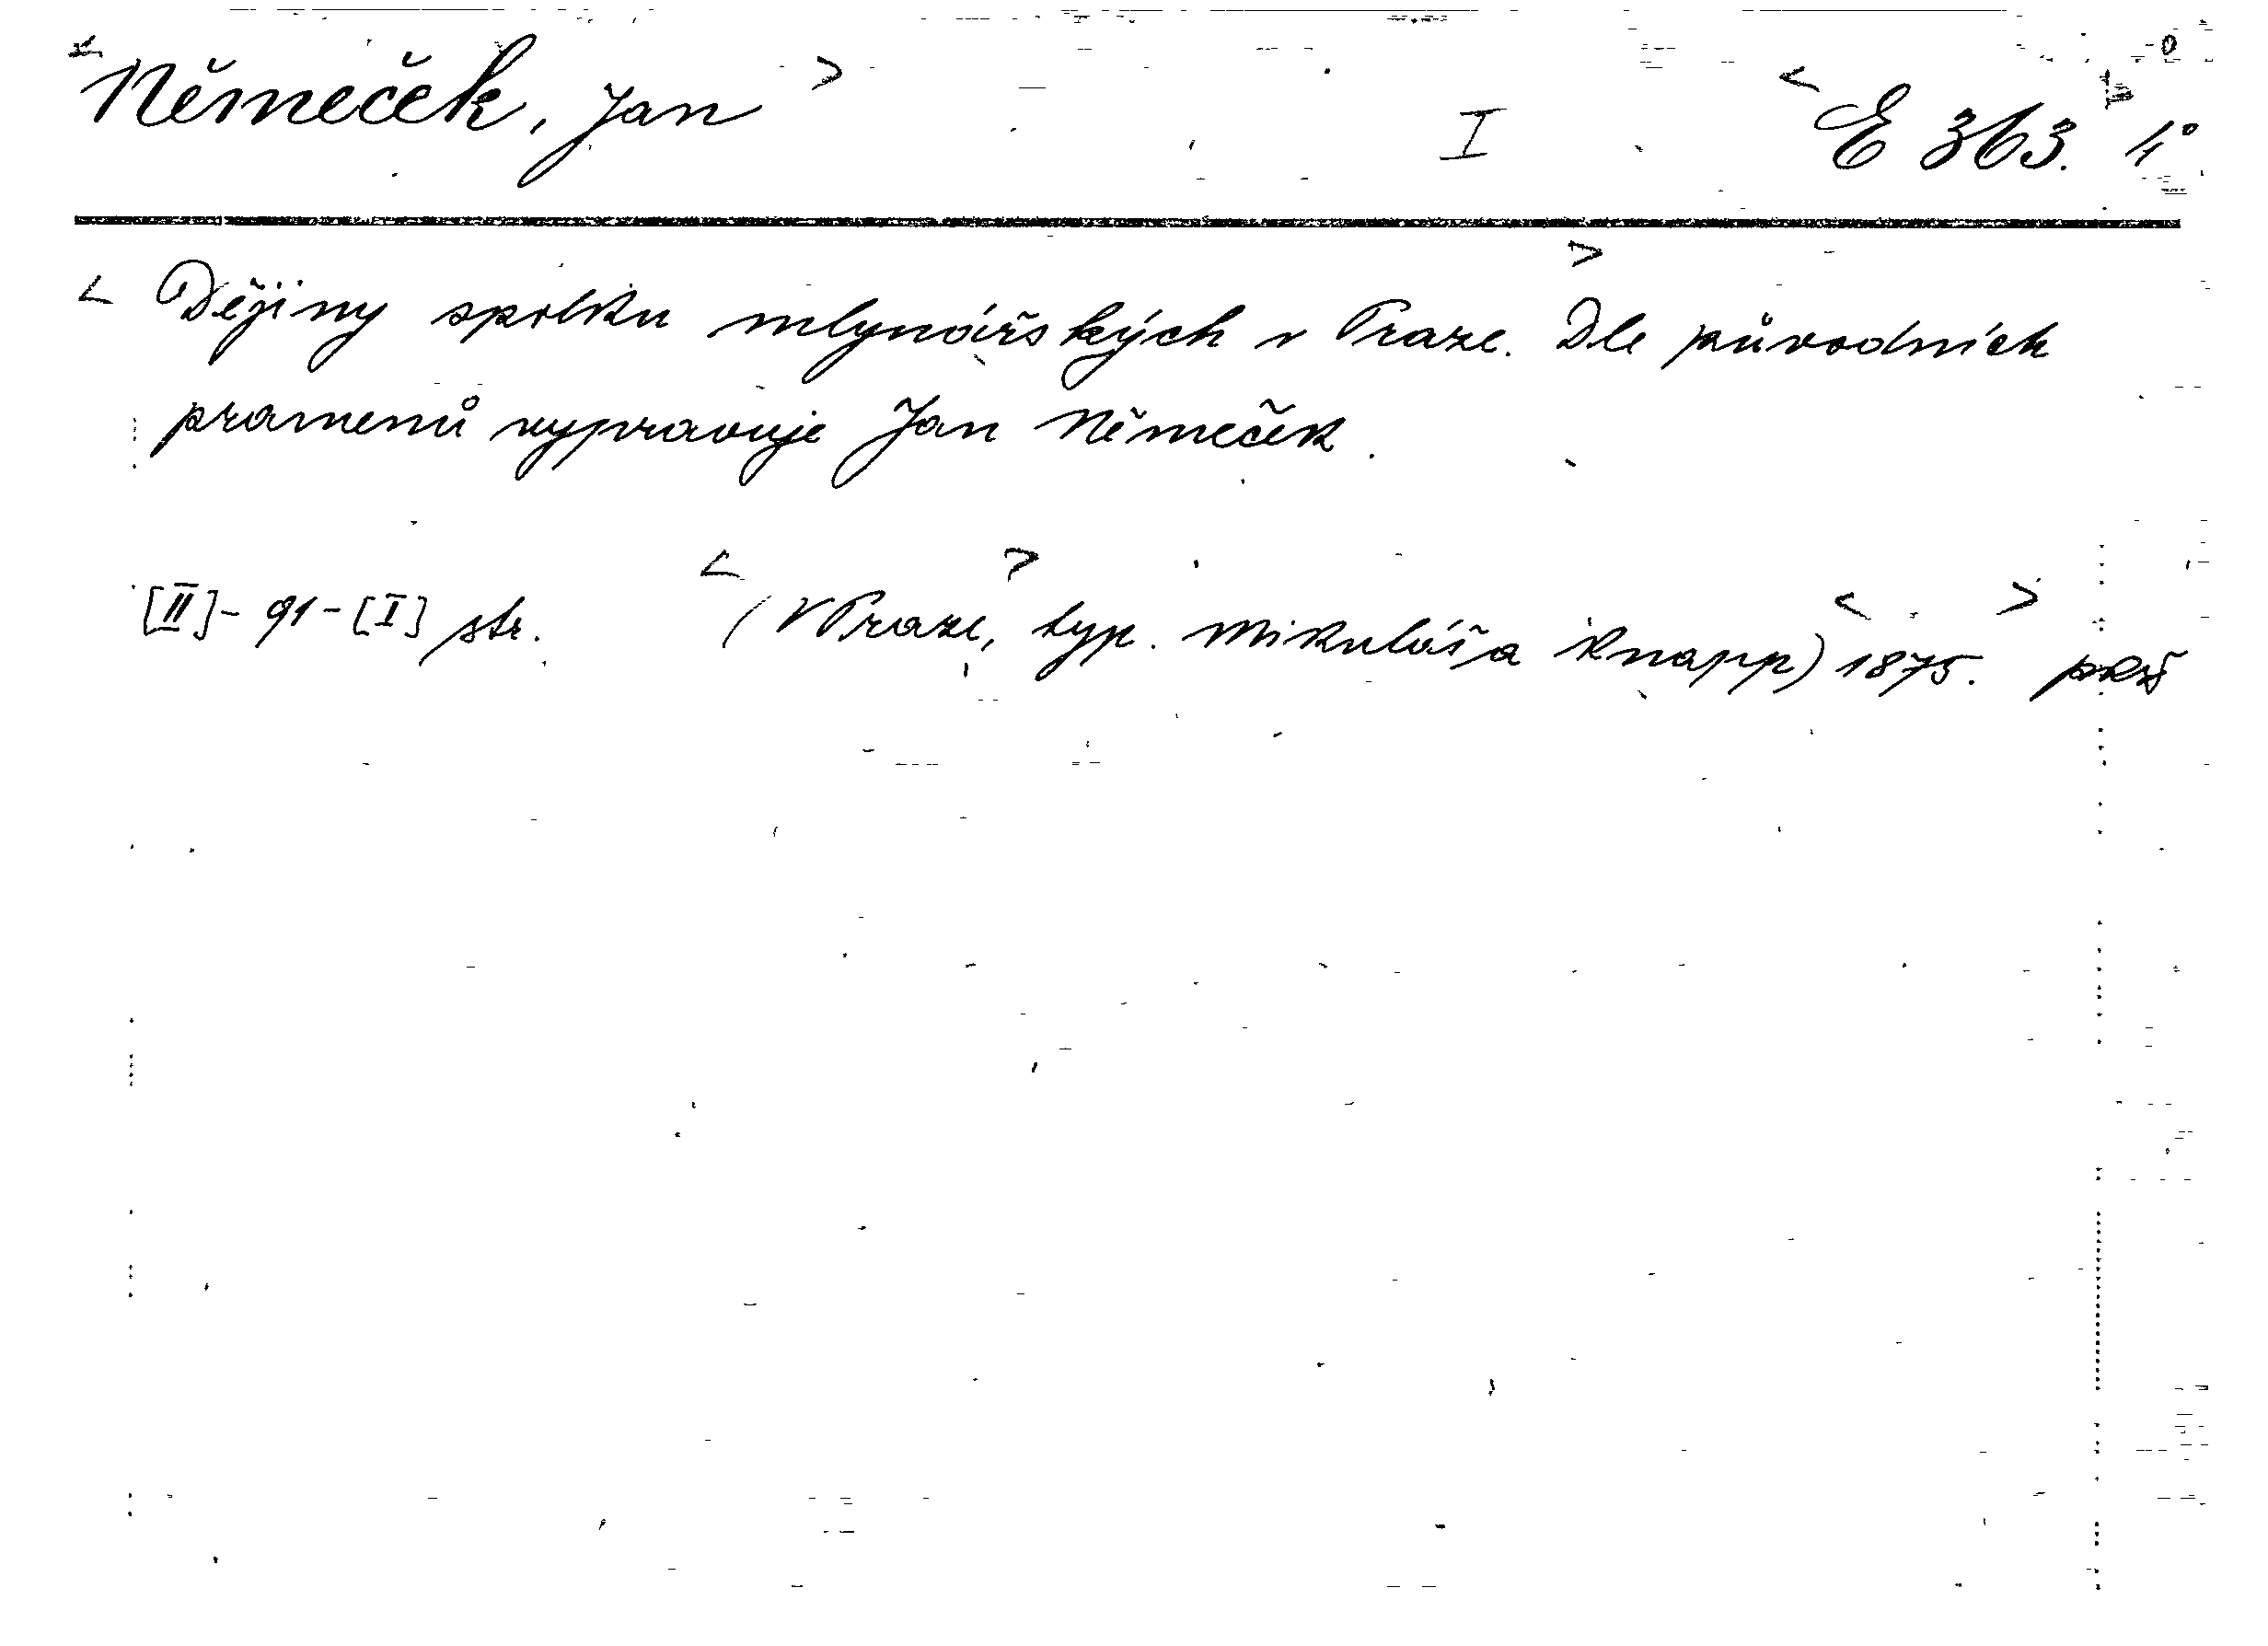 <Němeček, Jan> I <E 363.> 4°
<Dějiny spolku mlynářských v Praze.> Dle původních
pramenů vypravuje Jan Němeček.
[II]-91-[I] str. <(V Praze,> typ. Mikuláš a Knapp) <1875.>